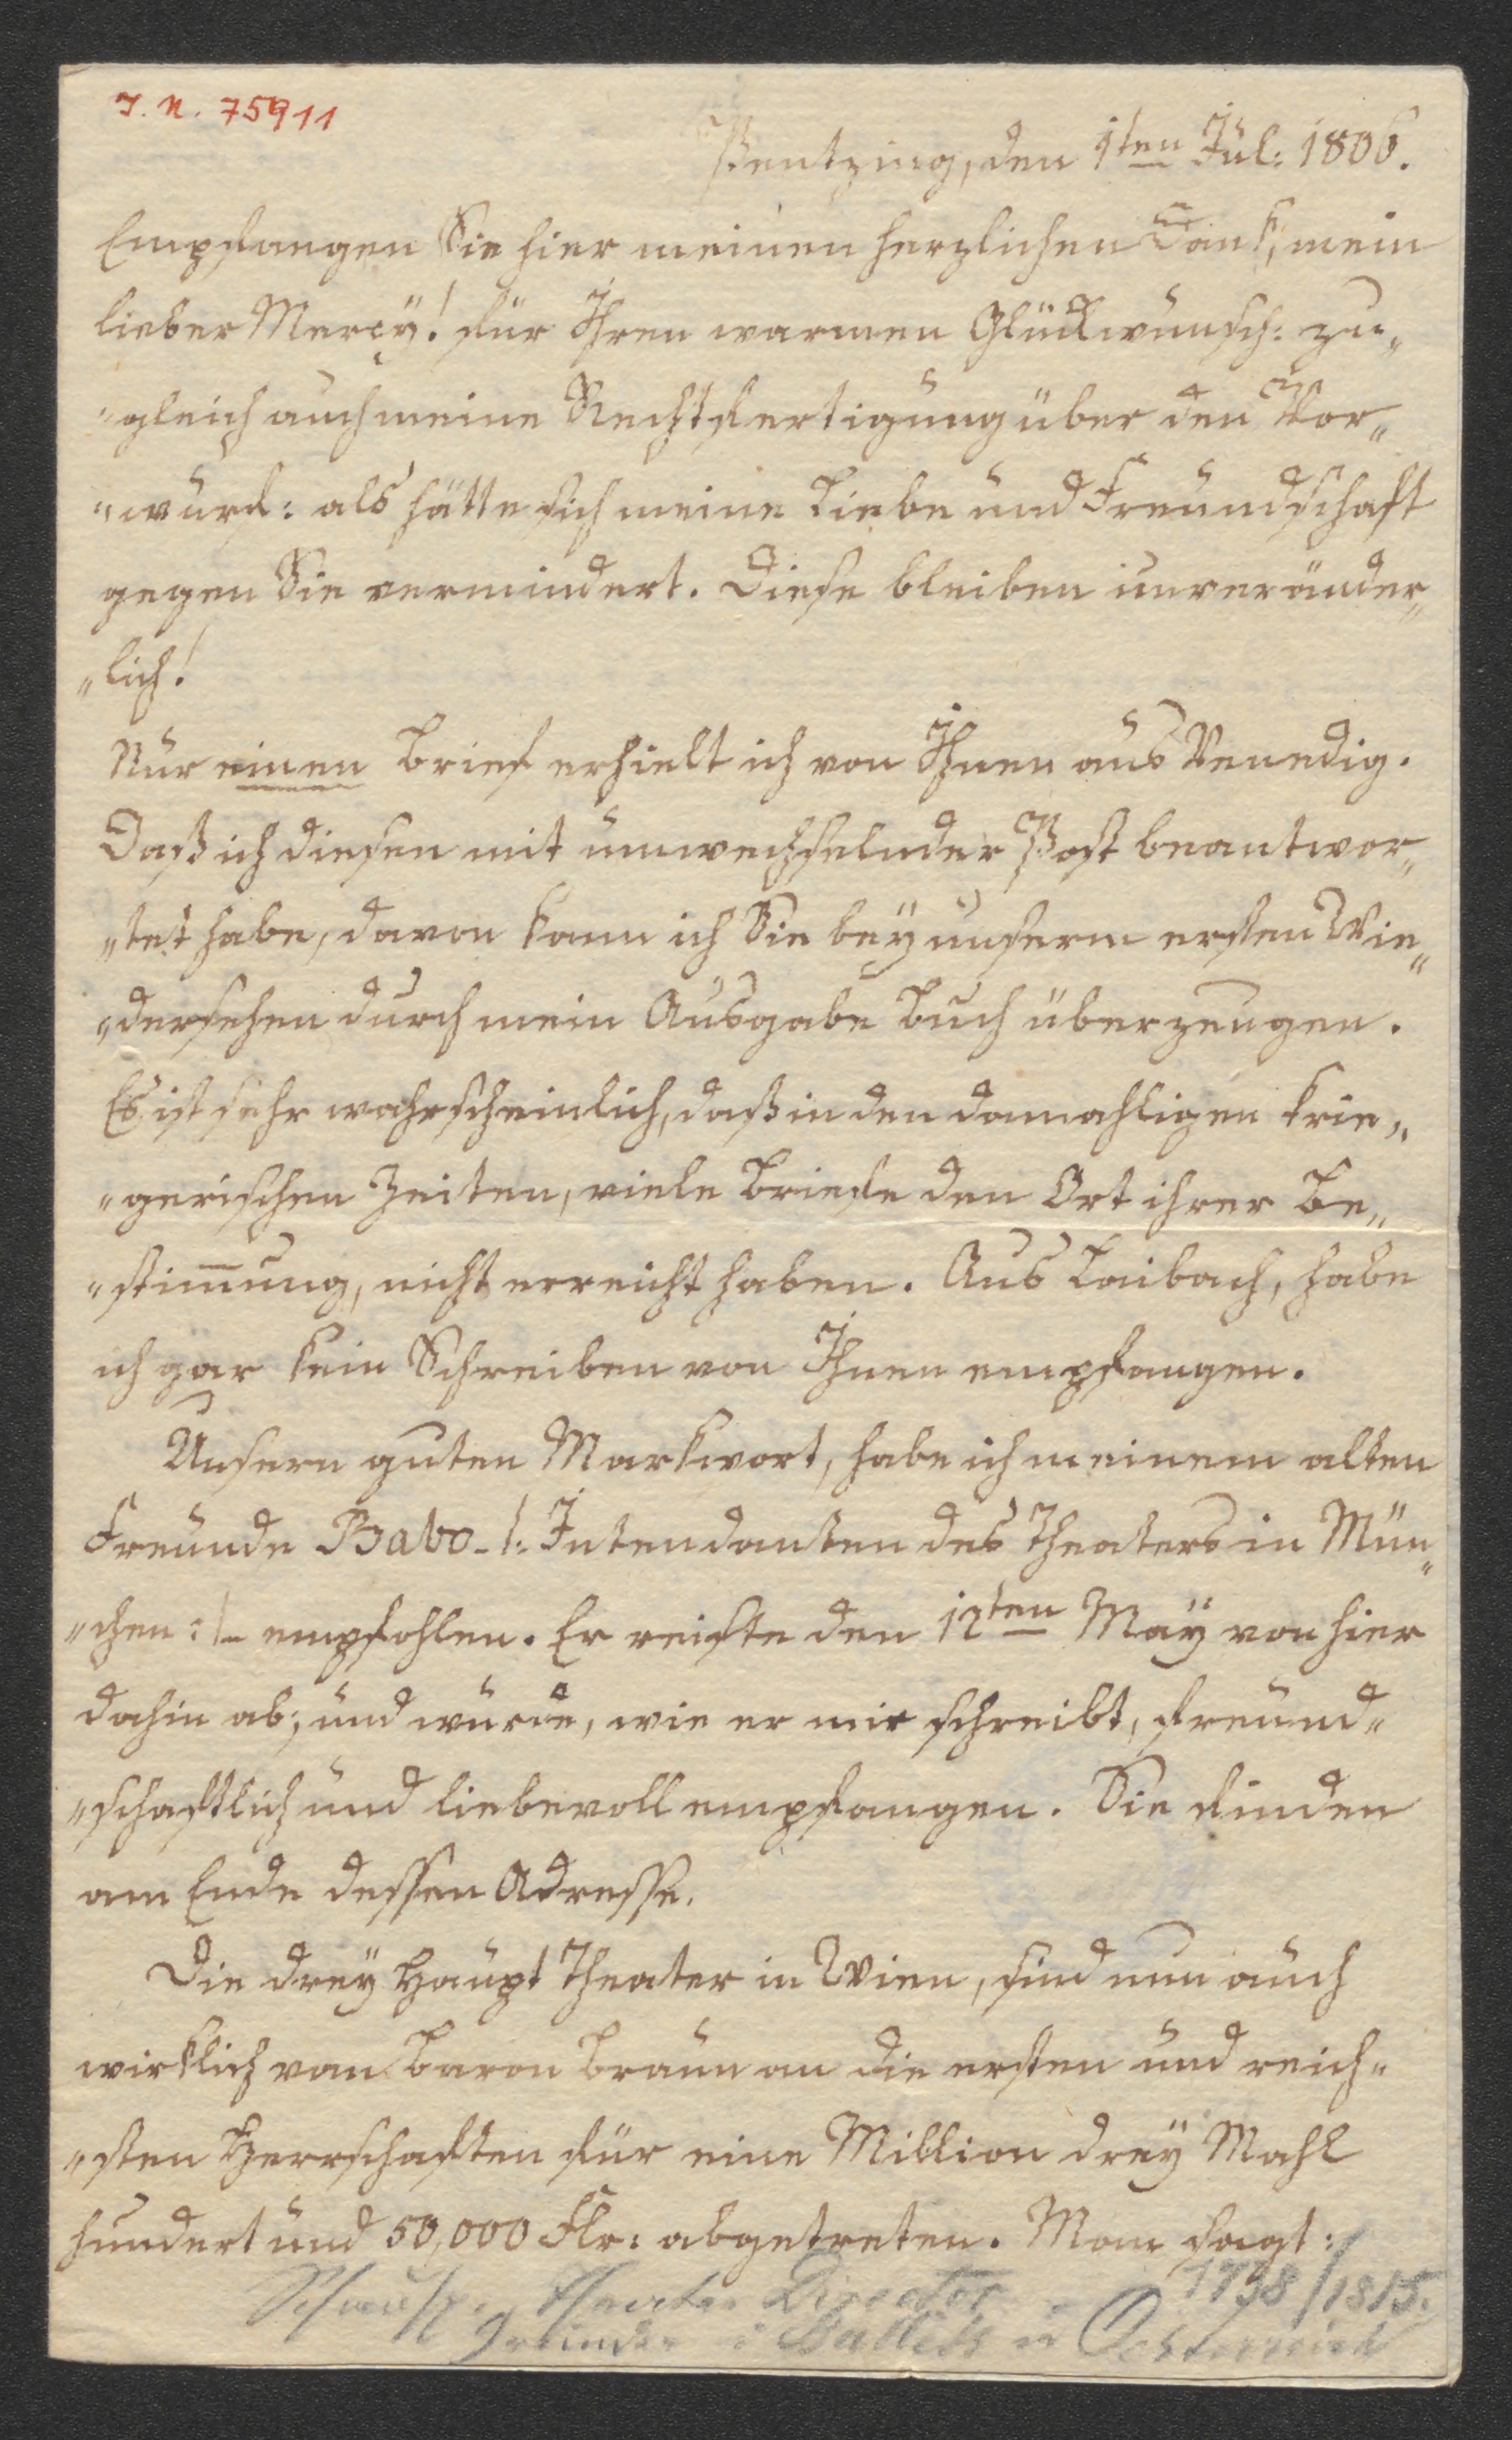 I. N. 75911
Pentzing, den 1ten Jul: 1806.
Empfangen Sie hier meinen herzlichen Dank, mein
lieber Merçÿ! für Ihren warmen Glückwunsch: zu„
„gleich auch meine Rechtfertigung über den Vor„
„wurf: als hätte sich meine Liebe und Freundschaft
gegen Sie vermindert. Diese bleiben unveränder„
„lich!
Nur einen Brief erhielt ich von Ihnen aus Venedig.
Daß ich diesen mit umwechselnder Post beantwor„
„tet habe, davon kann ich Sie beÿ unserm ersten Wie„
„dersehen durch mein Ausgabe Buch überzeugen.
Es ist sehr wahrscheinlich, daß in den damahligen krie„
„gerischen Zeiten, viele Briefe den Ort ihrer Be„
„stim̅ung, nicht erreicht haben. Aus Laibach, habe
ich gar kein Schreiben von Ihnen empfangen.
Unsern guten Markwort, habe ich meinem alten
Freunde Babo - /: Intendanten des Theaters in Mün„
„chen :/ - empfohlen. Er reiste den 12ten Maÿ von hier
dahin ab; und wurde, wie er mir schreibt, freund„
„schaftlich und liebevoll empfangen. Sie finden
am Ende dessen Adresse.
Die dreÿ Haupt Theater in Wien, sind nun auch
wirklich vom Baron Braun an die ersten und reich„
„sten Herrschaften für eine Million dreÿ Mahl
hundert und 50,000 Flr: abgetreten. Man sagt:
Schausp. Theater Director 1738/1815.
Gründer d Ballets in Oesterreich